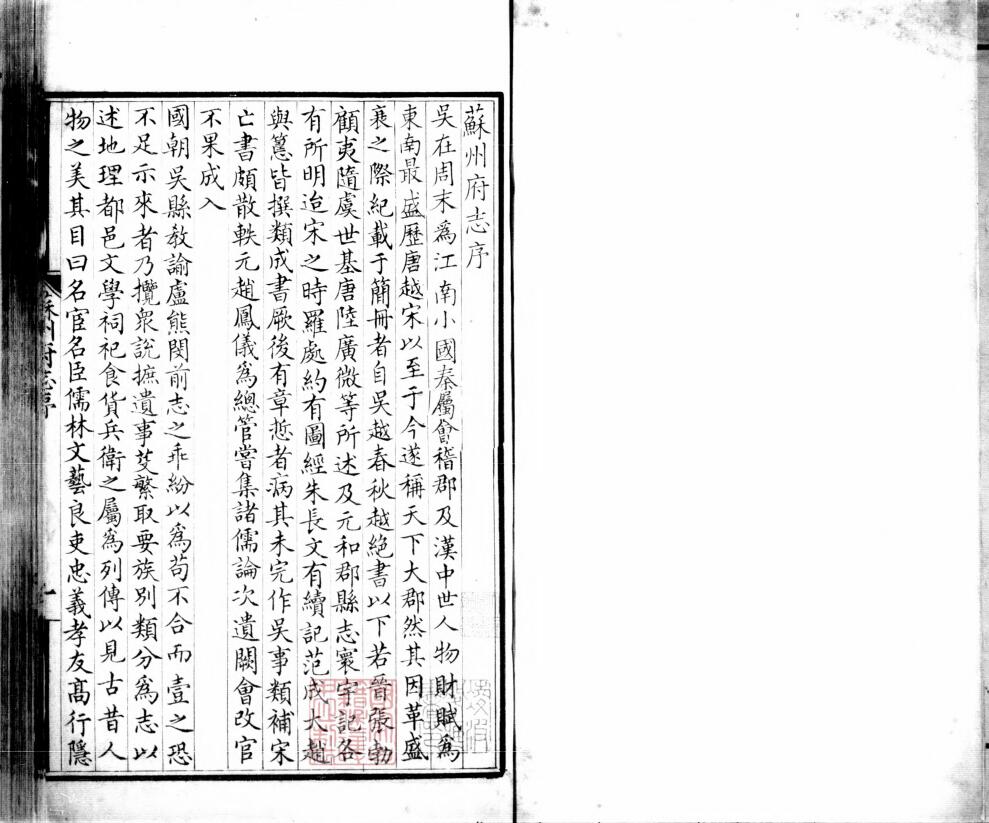 蘇州府志序
吳在周末爲江南小國秦屬會稽郡及漢中世人物財賦爲
東南最盛歷唐越宋以至于今遂稱天下大郡然其因革盛
衰之際紀載于簡冊者自吳越春秋越絶書以下若晉張勃
顧夷隨虞世基唐陸廣微等所述及元和郡縣志寰宇記各
有所明迨宋之時羅處約有圖經朱長文有續記范成大趙
與𥲅皆撰類成書厥後有章悊者病其未完作吳事類補宋
亡書頗散軼元趙鳳儀爲總管嘗集諸儒論次遺闕會改官
不果成入
國朝吳縣教諭盧熊閔前志之乖紛以爲苟不合而壹之恐
不足示來者乃攬衆說摭遺事芟繁取要族別類分爲志以
述地理都邑文學祠祀食貨兵衛之屬爲列傳以見古昔人
物之美其目曰名宦名臣儒林文藝良吏忠義孝友高行隱
蘇州府志序
一